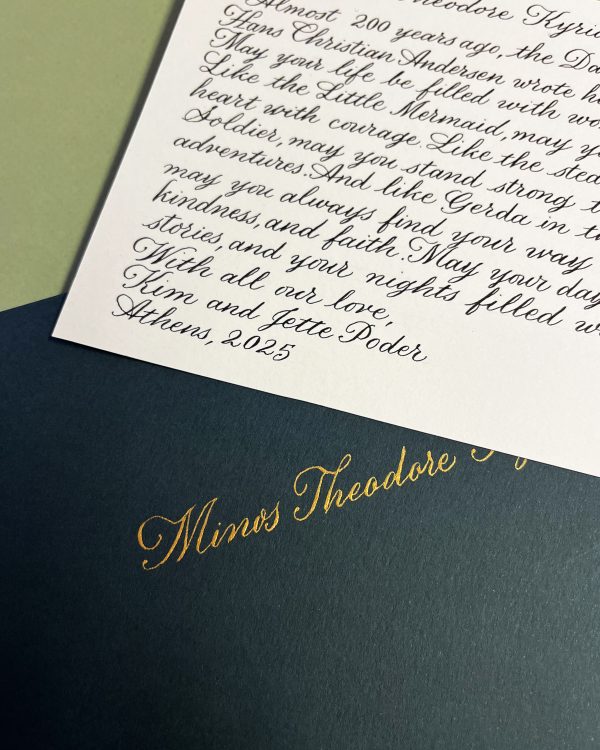 Theodore
Almost 200 years ago, the
Hans Christian Andersen wrote
May your life be filled with
Like the Little Mermaid, may
heart with courage. Like the
Soldier, may you stand strong
adventures. And like Gerda in
may you always find your way
kindness, and faith. May your
stories, and your nights filled
With all our love,
Kim and Jette Poder
Athens, 2025
Minos Theodore